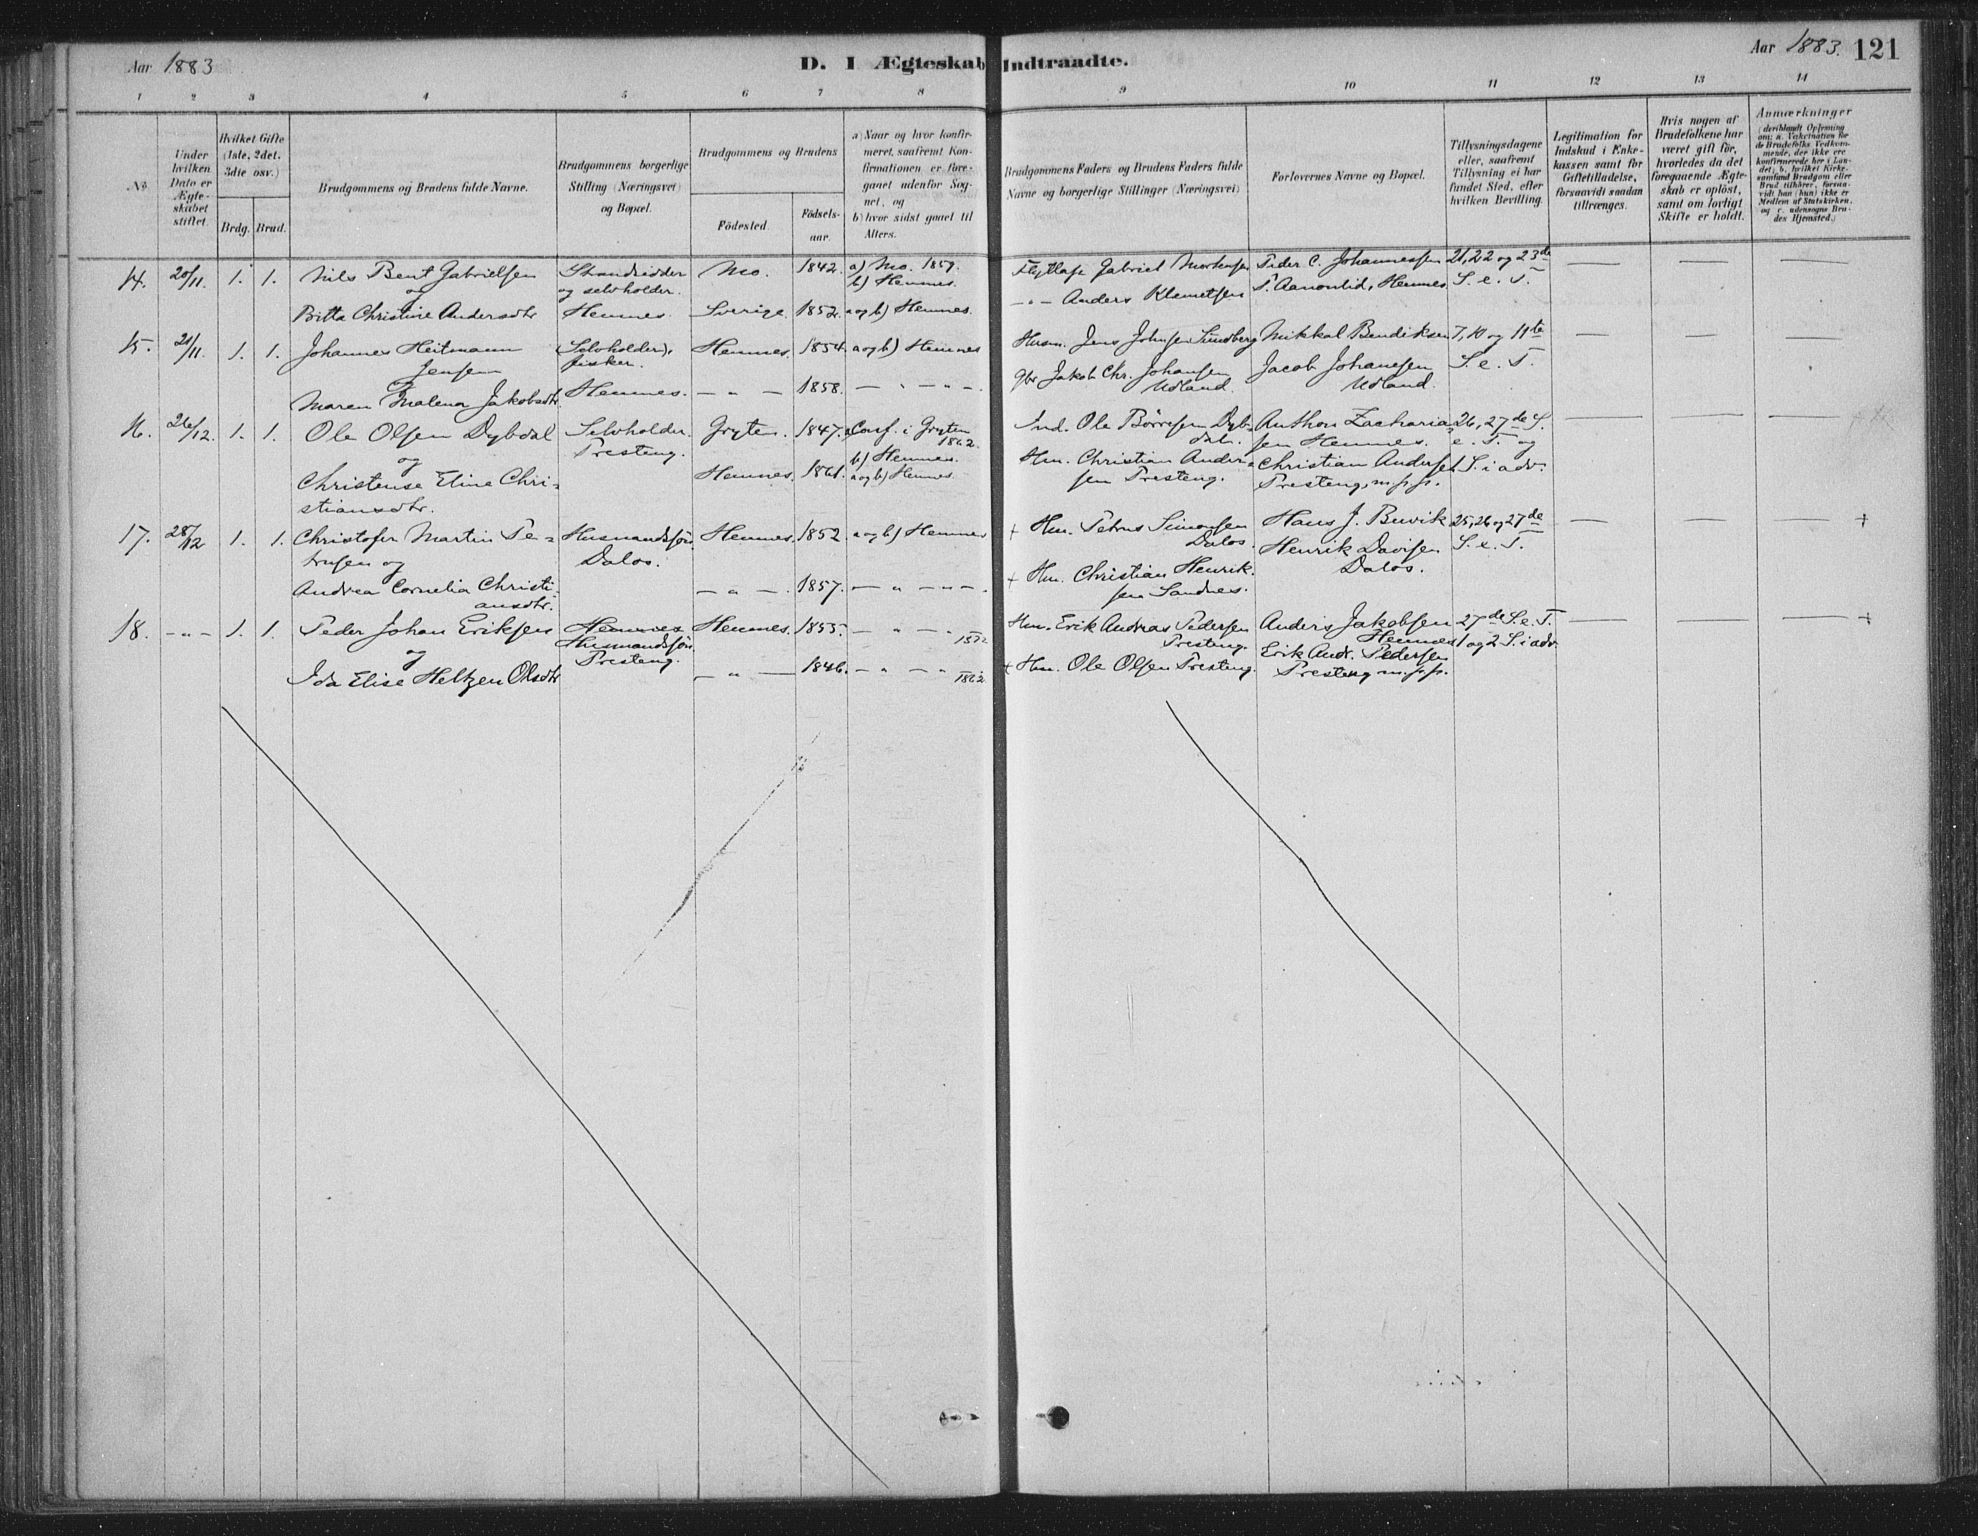 Aar 1883
D. I Ægteskab Indtraadte.
Aar 1883. 121
1 2 3 4 5 6 7 8 9 10 11 12 13 14
No.
Under hvilken Dato er Ægteskabet stiftet.
Hvilket Gifte (1ste, 2det, 3die osv.)
Brdg. Brud.
Brudgommens og Brudens fulde Navne.
Brudgommens borgerlige Stilling (Næringsvei) og Bopæl.
Brudgommens og Brudens
Födested.
Födselsaar.
a) Naar og hvor konfirmeret, saafremt Konfirmationen er foregaaet udenfor Sognet, og
b) hvor sidst gaaet til Alters.
Brudgommens Faders og Brudens Faders fulde Navne og borgerlige Stillinger (Næringsvei)
Forlovernes Navne og Bopæl.
Tillysningsdagene eller, saafremt Tillysning ei har fundet Sted, efter hvilken Bevilling.
Legitimation for Indskud i Enkekassen samt for Giftetilladelse, forsaavidt saadan tiltrænges.
Hvis nogen af Brudefolkene har været gift før, hvorledes da det foregaaende Ægteskab er oplöst, samt om lovligt Skifte er holdt.
Anmærkninger
14. 20/11. 1. 1. Nils Bent Gabrielsen
og
Britta Christine Andersdtr
Strandsidder
og selvholder.
Hemnes.
Mo. 1842. a) Mo. 1859.
b) Hemnes.
Sverige. 1852. a og b) Hemnes.
Gabriel Mortensen
— " — Anders Klemetsen
Peder C. Johannessen
P. Aanonlid, Hemnes.
21, 22 og 23de
S. e. T.
15. 21/11. 1. 1. Johannes Heitmann
Jensen
Maren Malena Jakobsdtr.
(Selvholder),
fisker.
Hemnes.
Hemnes. 1854. a og b) Hemnes
— " — 1858. — " — " —.
Husm. Jens Johnsen Sundberg
Gbr Jakob Chr. Johansen
Udland.
Mikkal Bendiksen
Jacob Johansen
Udland.
7, 10 og 11te
S. e. T.
16. 26/12. 1. 1. Ole Olsen Dybdal
og
Christense Eline Chri-
stiansdtr.
Selvholder.
Presteng.
Gryten. 1847. Conf. i Gryten
1862.
b) Hemnes.
Hemnes. 1861. a og b) Hemnes.
Ind. Ole Børresen Dyb-
dal.
Hm. Christian Ander-
sen Presteng.
Anthon Zacharia-
sen Hemnes.
Christian Andersen
Presteng, m.p.p.
26, 27de S.
e. T. og
1 S. i adv.
17. 28/12 1. 1. Christofer Martin Pe-
trusen og
Andrea Cornelia Christi-
ansdtr.
Husmandssøn
Dalos.
Hemnes. 1852. a og b) Hemnes
— " —. 1857. — " — " —.
+ Hm. Petrus Simonsen
Dalos.
+ Hm. Christian Henrik-
sen Sandnes.
Hans J. Buvik
Henrik Davisen
Dalos.
25, 26 og 27de
S. e. T.
+
18. — " — 1. 1. Peder Johan Eriksen
og
Ida Elise Heltzen Olsdtr
Hemnes
Husmandssøn
Presteng.
Hemnes. 1855. — " — "
— " — 1846. — " — " 1862.
Hm. Erik Andreas Pedersen
Presteng.
+ Hm. Ole Olsen Presteng.
Anders Jakobsen
Hemnes
Erik Andr. Pedersen
Presteng m.p.p.
27de S. e. T.
1 og 2 S. i adv.
+